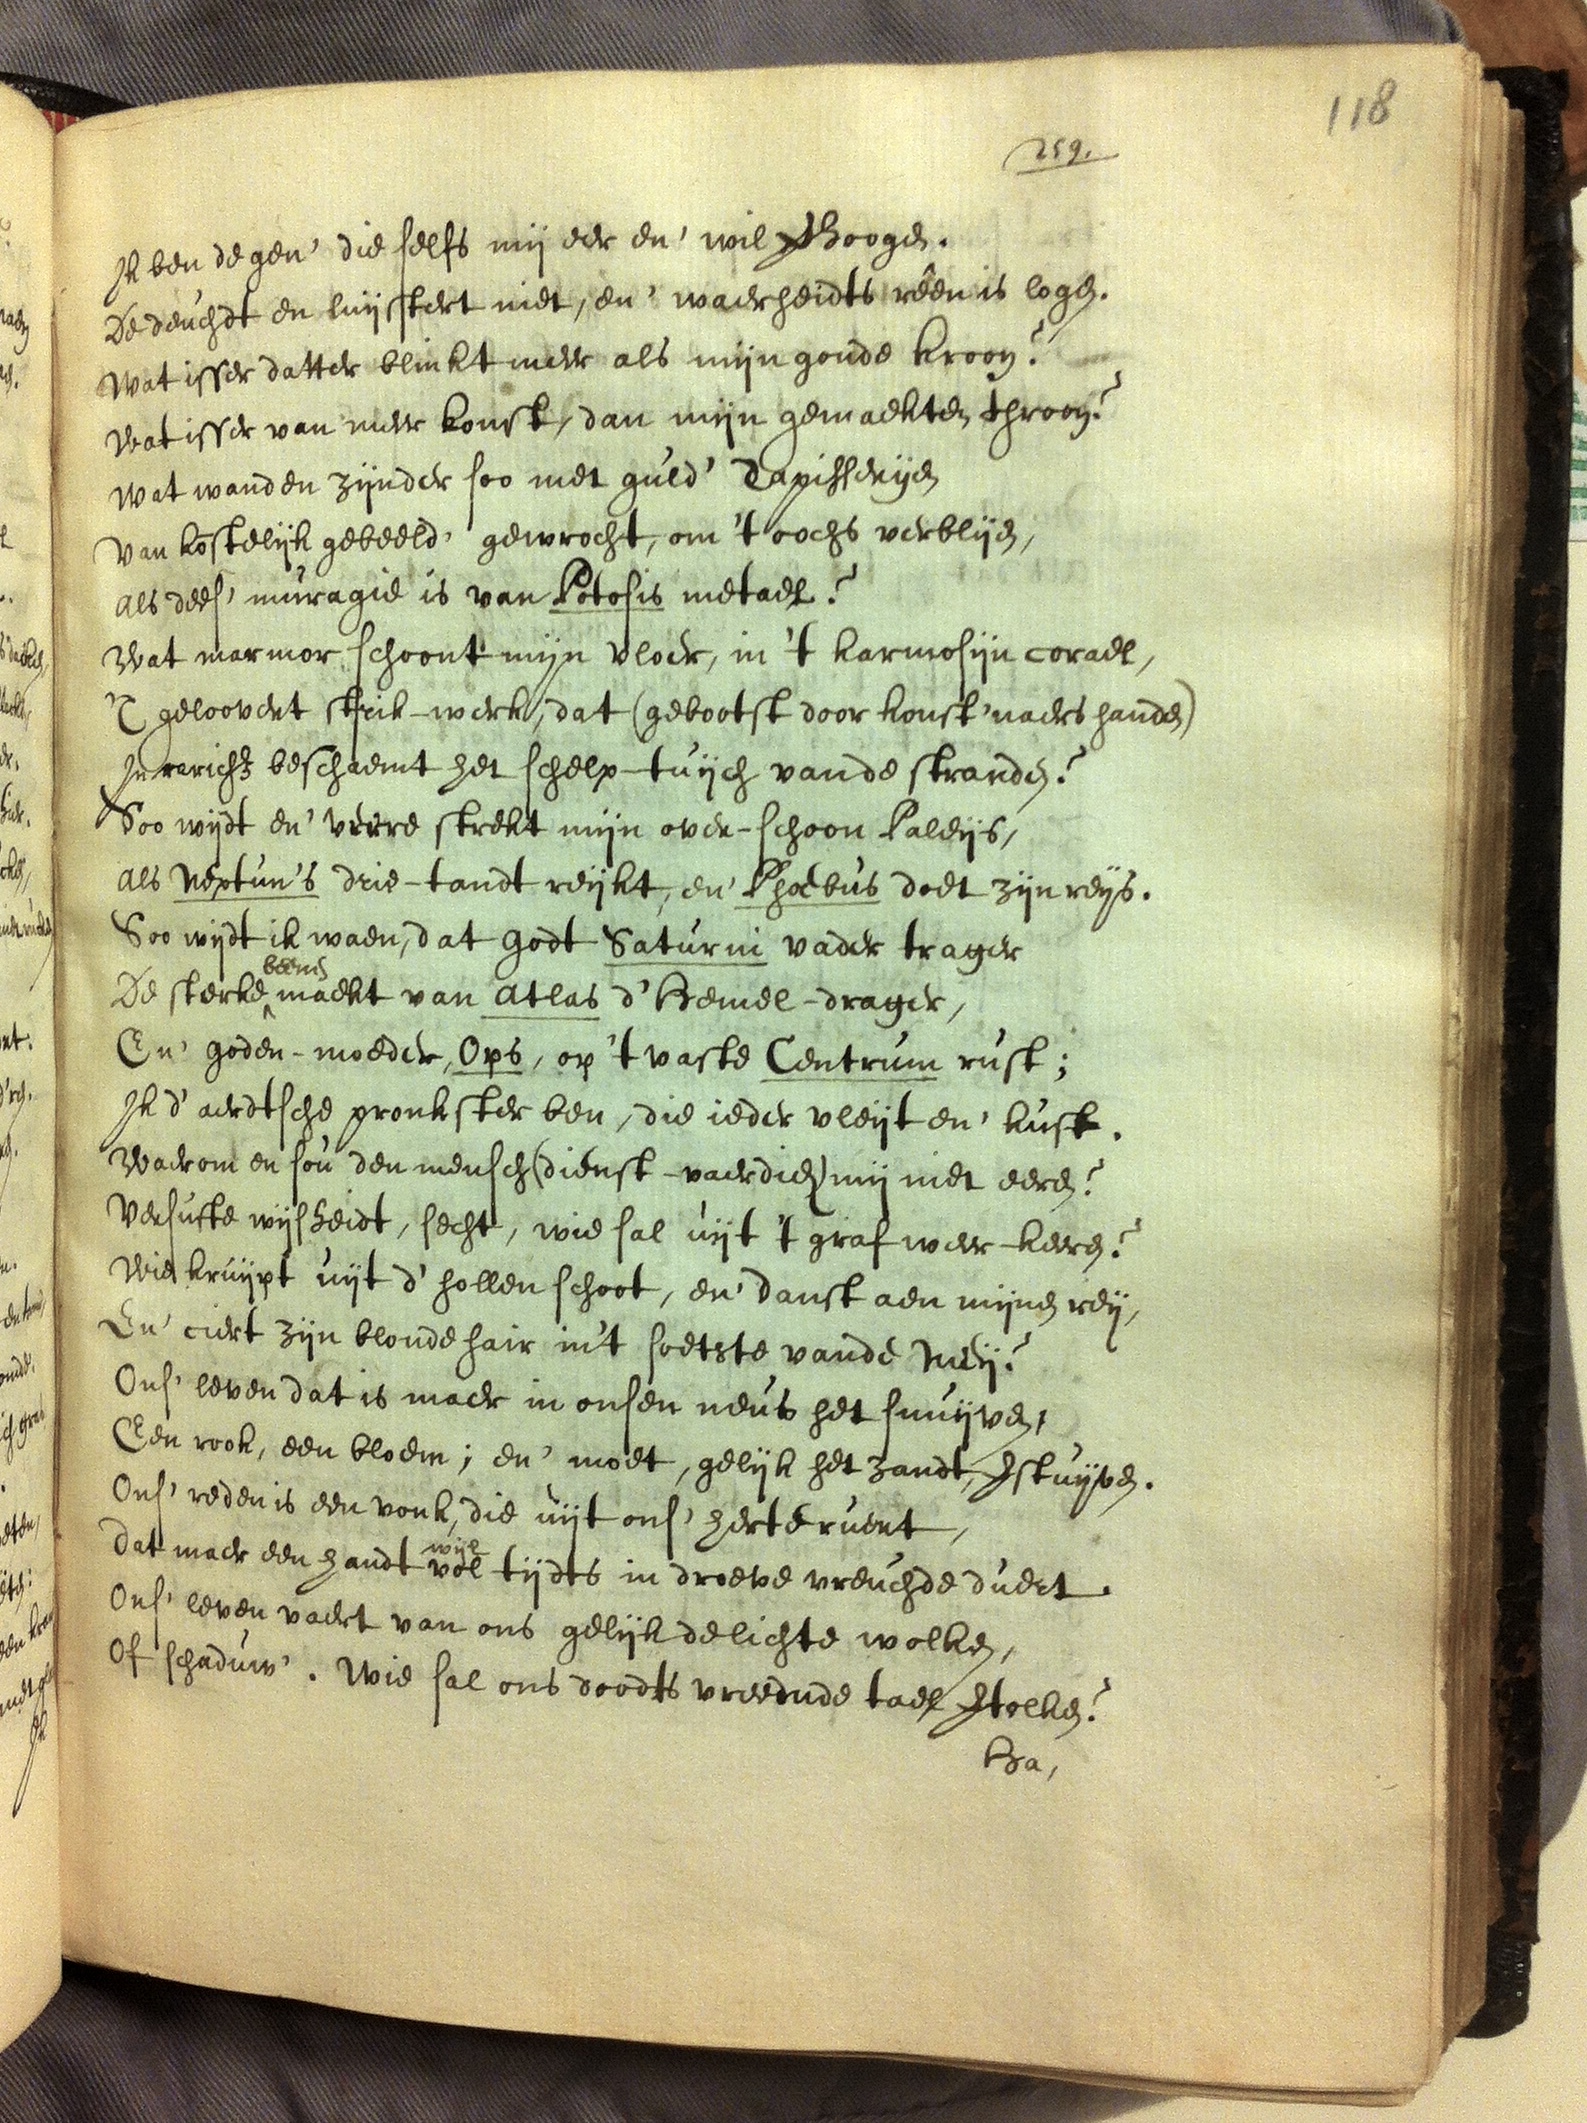 118
259.
Ik ben de gen' die selfs mij eer en' wil verhoogen.
De deuchdt en luijstert niet, en' waerheidts rêen is logen.
Wat isser datter blinkt meer als mijn goude kroon?
Wat isser van meer konst, dan mijn gemaekten throon?
Wat wanden zijnder soo met guld' Tapisserijen
Van kostelijk gebeeld' gewrocht, om 't oochs verblijen,
Als dees' muragie is van Potosis metael?
Wat marmor schoont mijn vloer, in 't karmosijn corael,
'T geloovert strik-werk, dat (gebootst door konst'naers handen)
In rarichz beschaemt het schelp-tuijch vande stranden?
Soo wijdt en' verre strekt mijn over-schoon Paleijs,
Als Neptun's drie-tandt reijkt, en' Phoebus doet zijn reijs.
Soo wijdt ik waen, dat Godt Saturni vader trager
De sterke beenen maekt van Atlas d' Hemel-drager,
En' goden-moeder, Ops, op 't vaste Centrum rust;
Ik d' aerdtsche pronkster ben, die ieder vleijt en' kust.
Waerom en sou den mensch (dienst-vaerdich) mij niet eeren?
Versufte wijsheidt, secht, wie sal uijt 't graf weer-keeren?
Wie kruijpt uijt d' hollen schoot, en' danst aen mijnen reij,
En' ciert zijn blonde hair in't soetste vande Meij?
Ons' leven dat is maer in onsen neus het snuijven,
Een rook, een bloem; en' moet, gelijk het zandt, verstuijven.
Ons' reden is een vonk, die uijt ons' herte ruert,
Dat maer een handt vol wijl tijdts in droeve vreuchde duert.
Ons' leven vaert van ons gelijk de lichte wolken,
Of schaduw'. Wie sal ons doodts vreemde tael vertolken?
Ha,